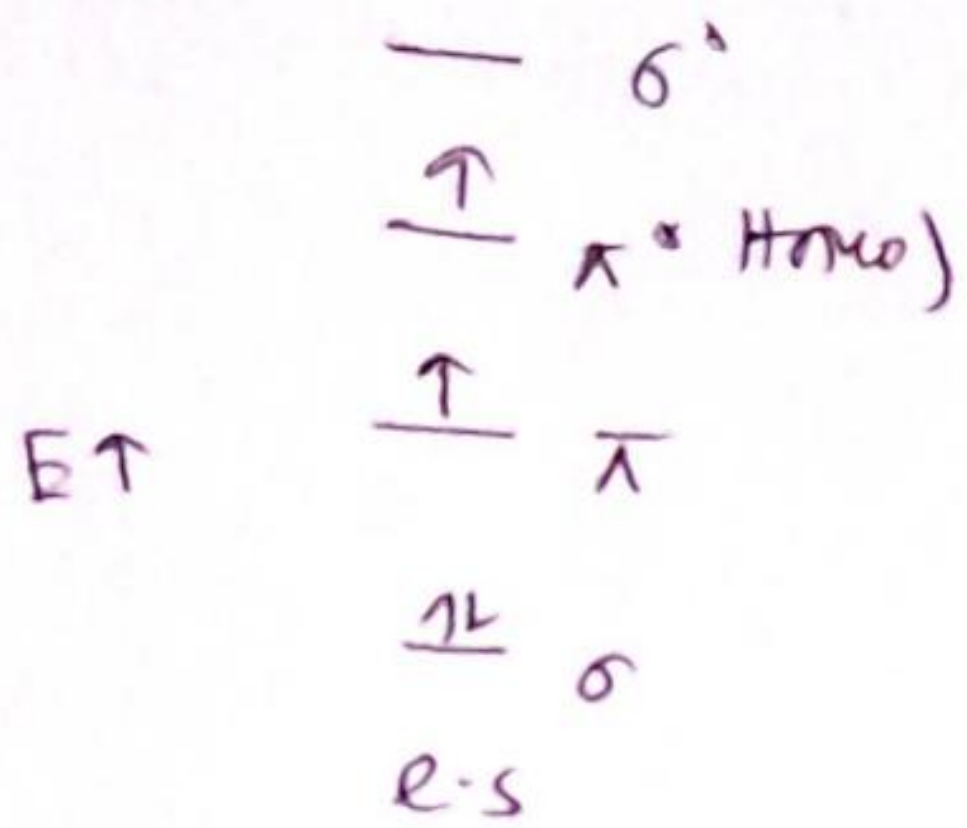 σ*
↑
π* Homo)
↑
E↑ π
↑↓
σ
e.s